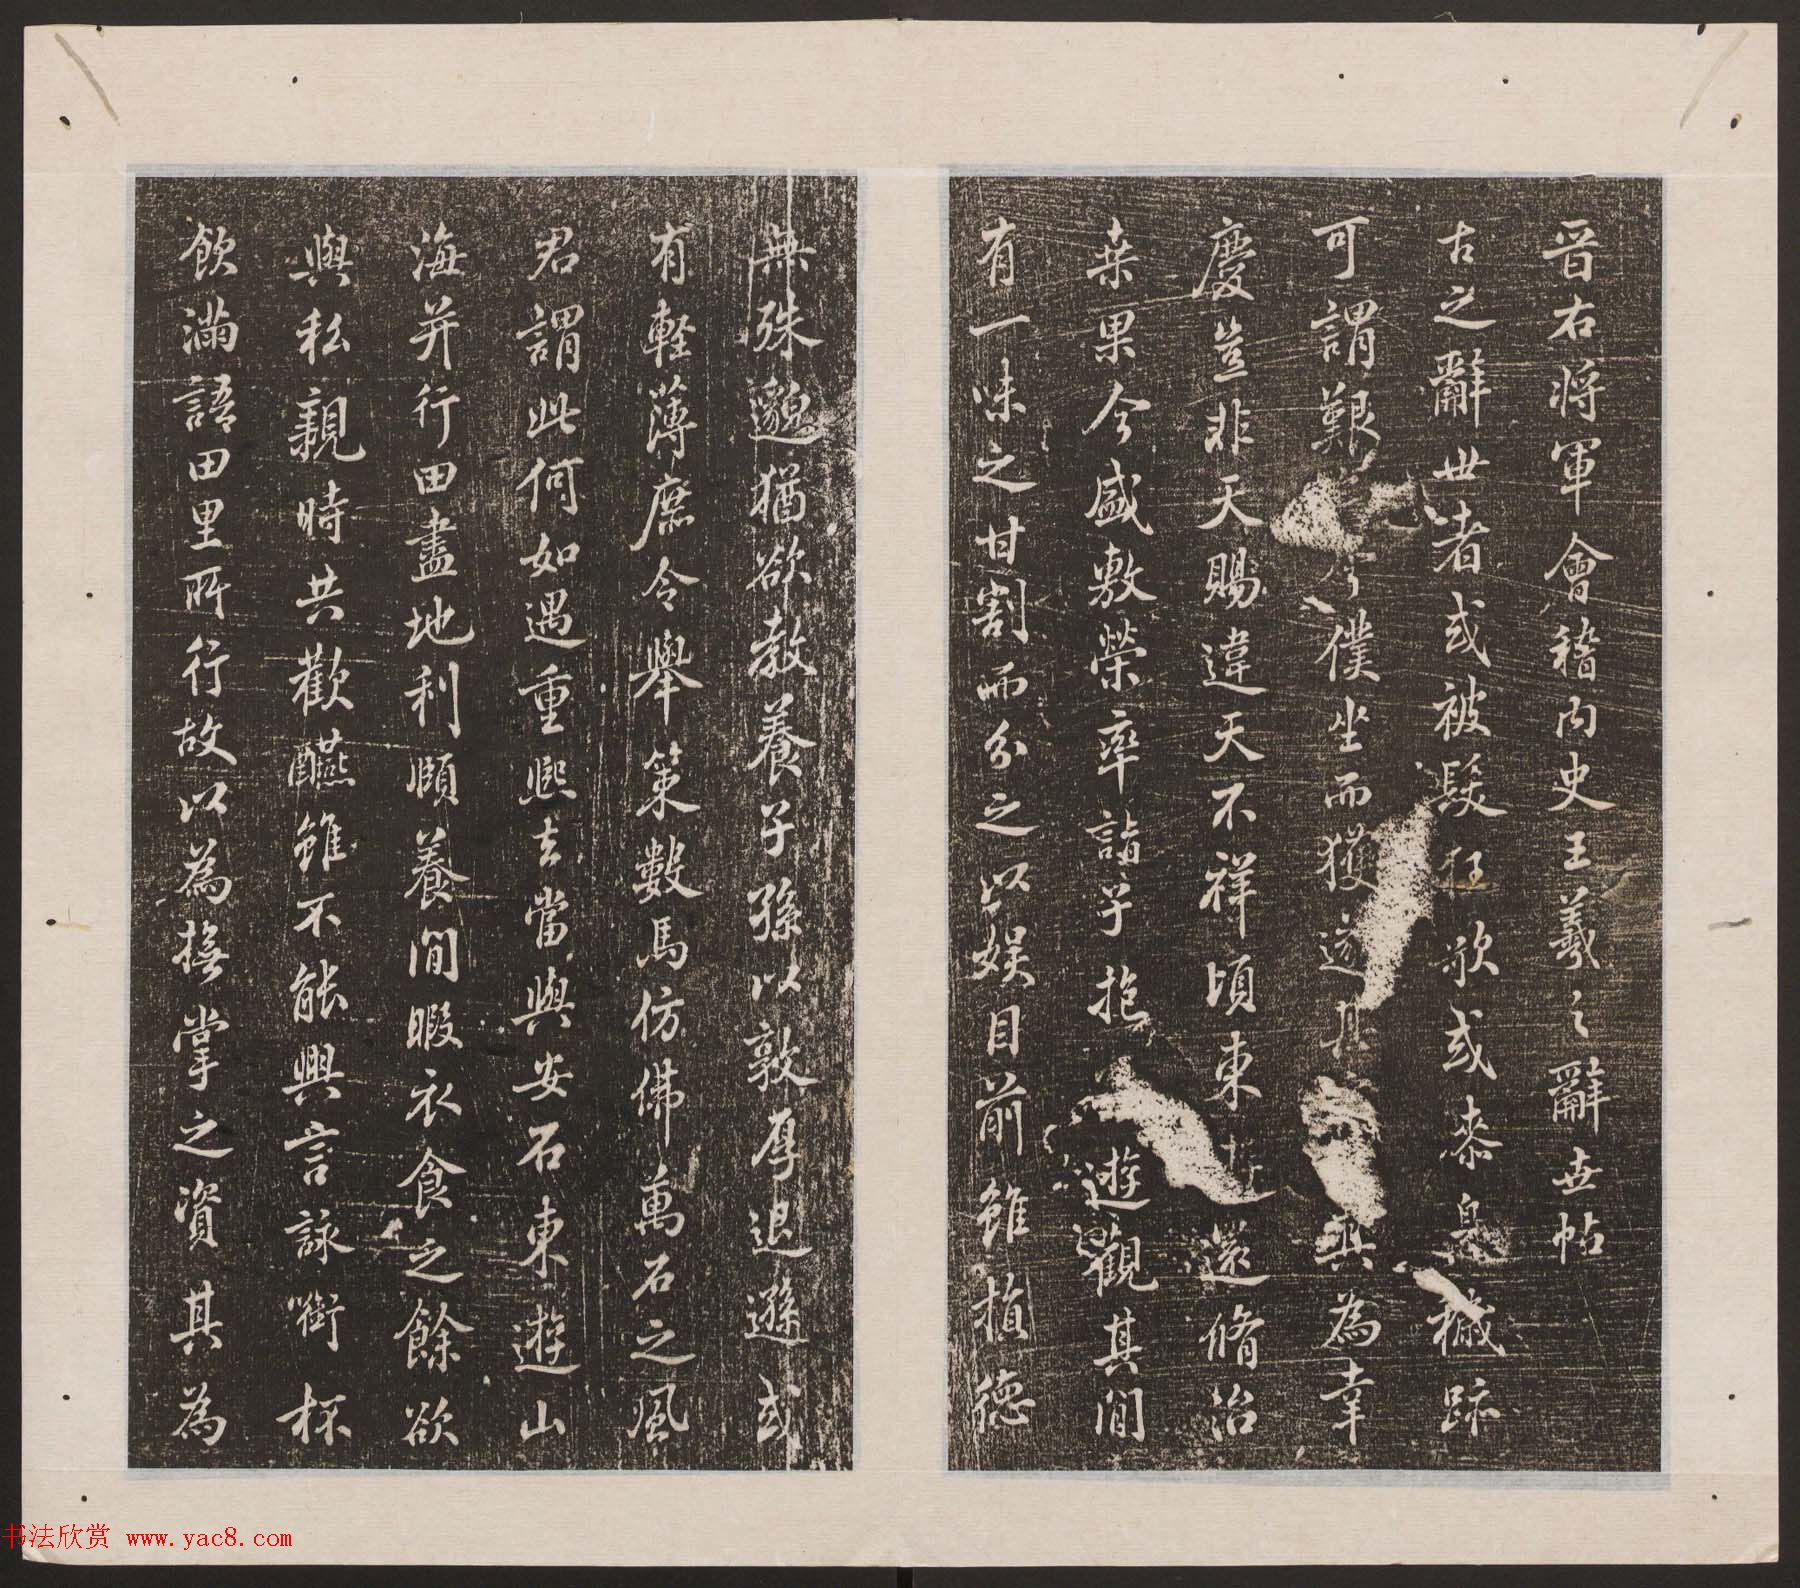 晋右將軍會稽内史王羲之辭世帖
古之辭世者或被髮狂歌或恭皂穢跡
可謂艱 僕坐而獲逸其 與為幸
慶豈非天賜違天不祥頃東遊還脩治
桒果今盛敷榮率諸子抱 遊觀其間
有一味之甘割而分之以娱目前雖植德
無殊邈猶欲教養子孫以敦厚退遜或
有輕薄庶令舉策數馬仿佛萬石之風
君謂此何如遇重熙去當與安石東遊山
海并行田盡地利頤養閒暇衣食之餘欲
與私親時共歡讌雖不能興言詠銜杯
飲滿語田里所行故以為撫掌之資其為
书法欣赏 www.yac8.com